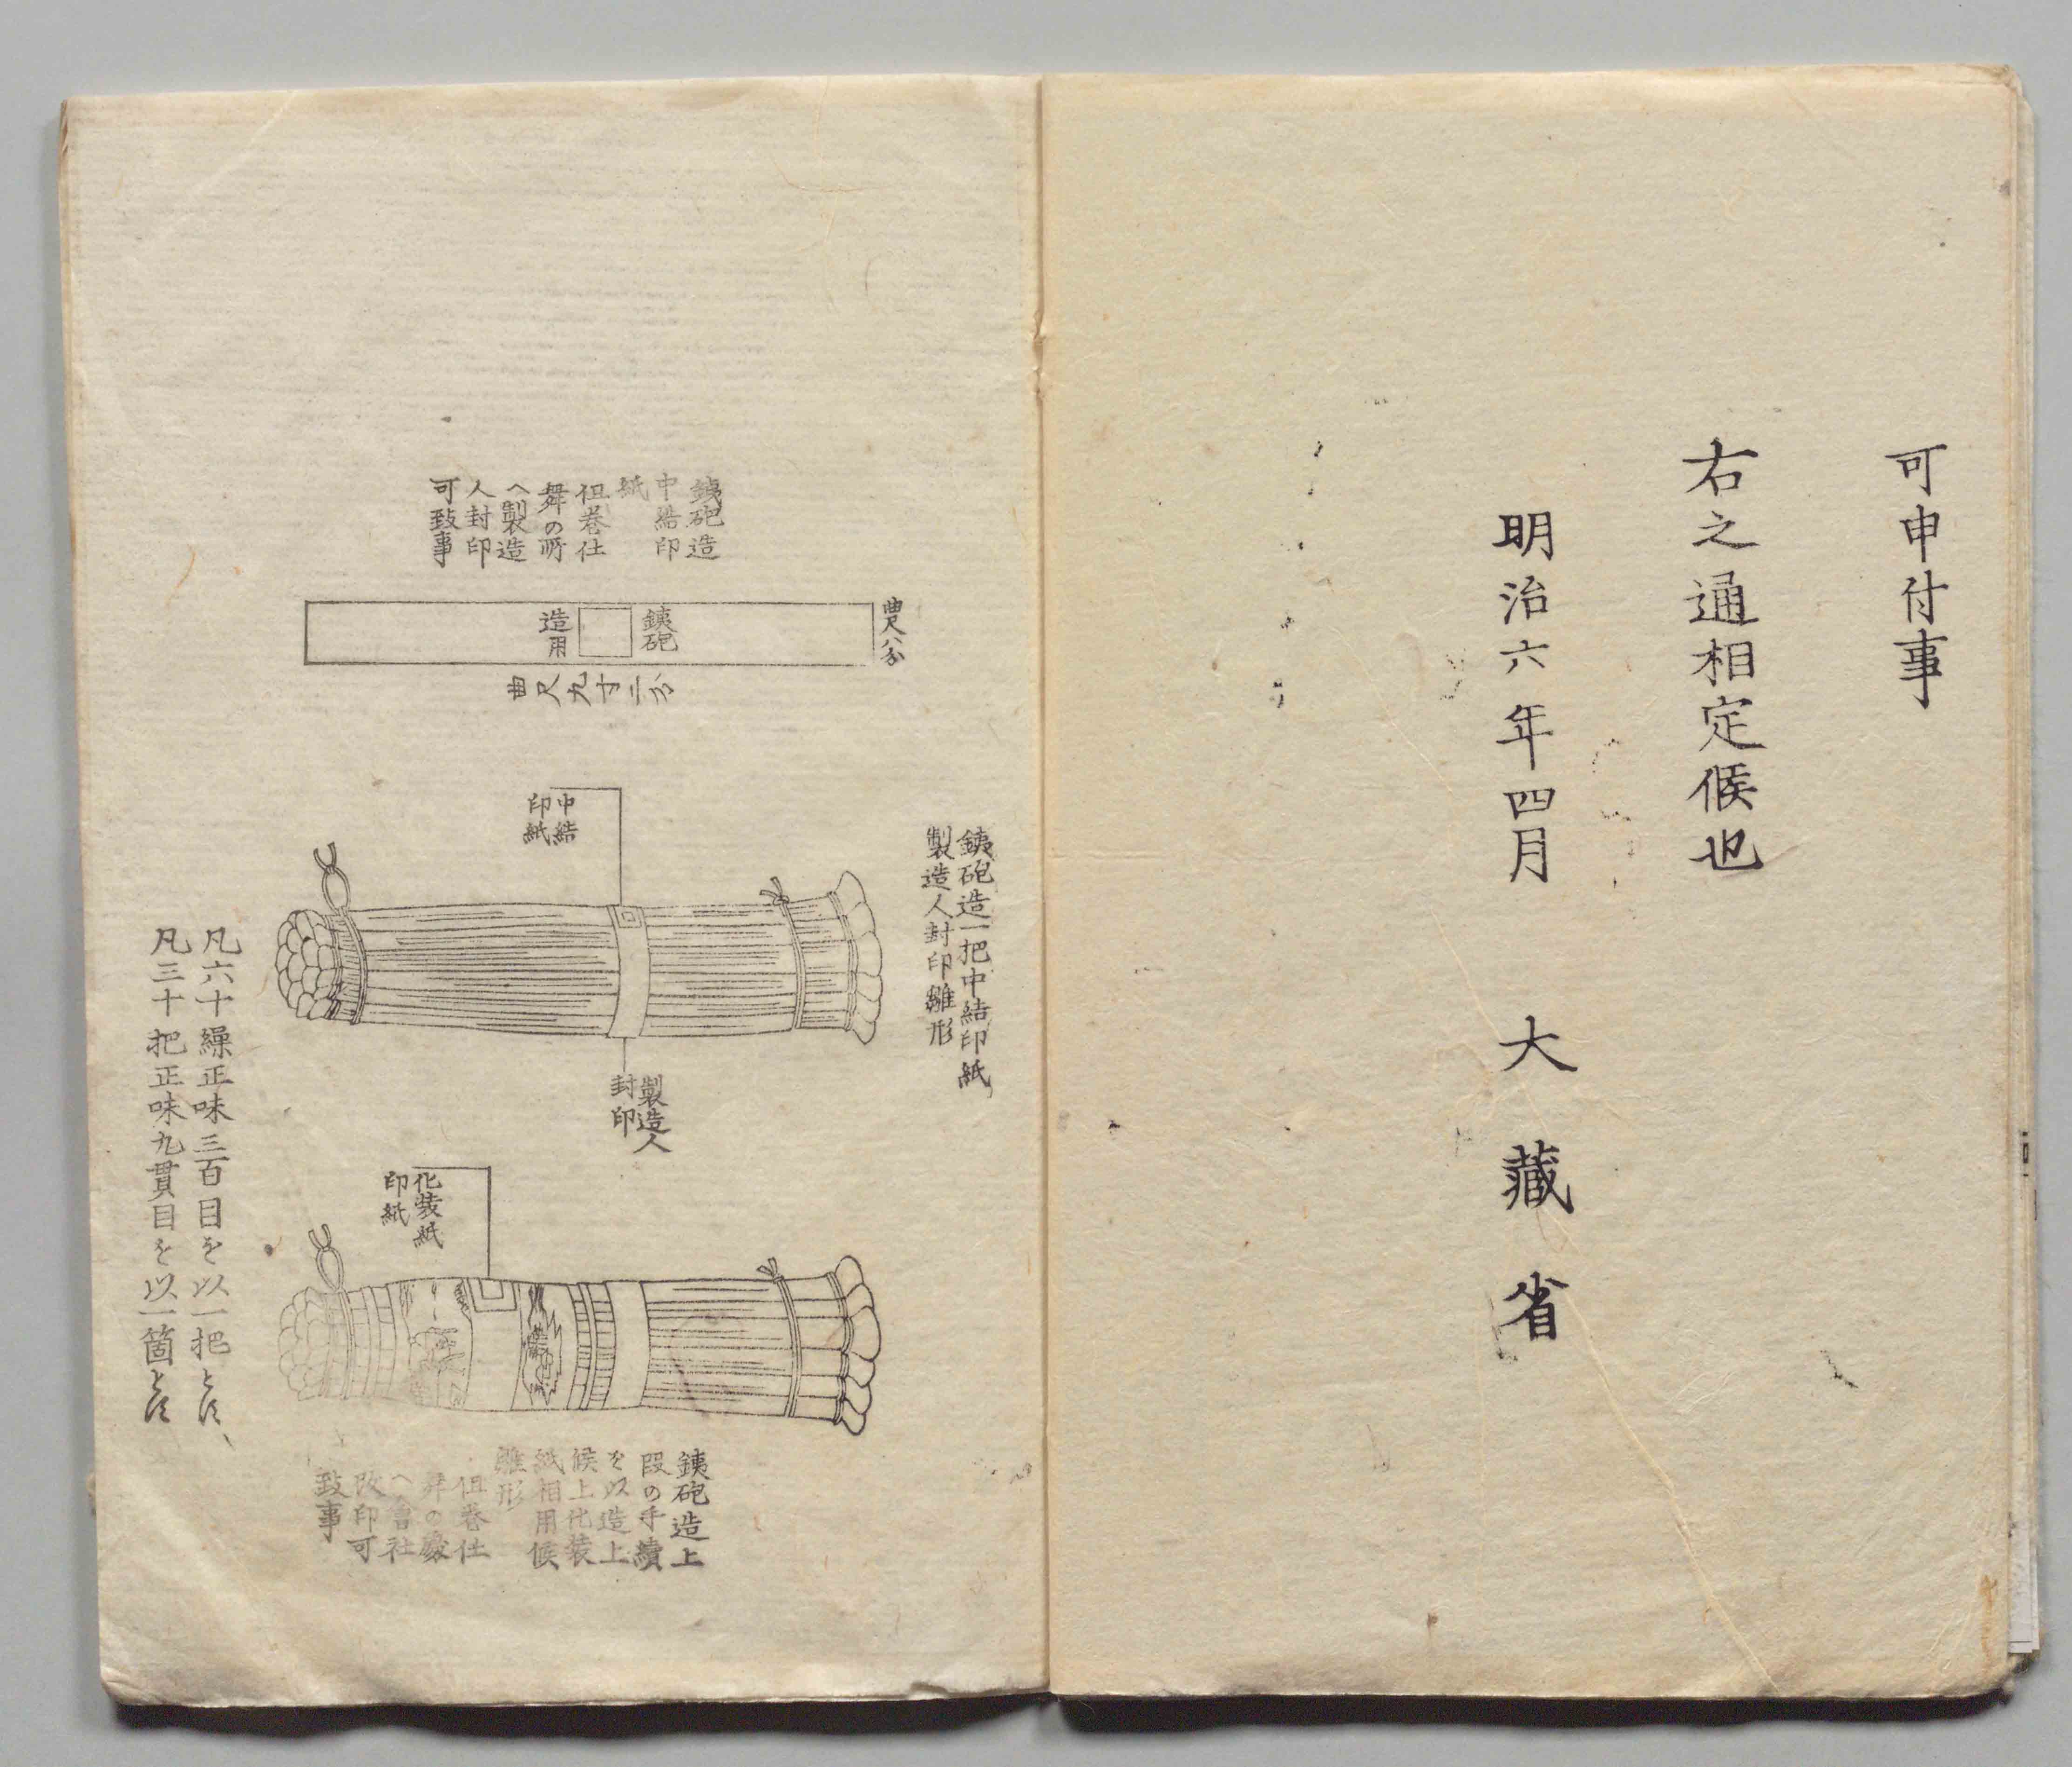 可申付事
右之通相定候也
明治六年四月　大藏省
銕砲造
中結印
紙
但巻仕
舞の所
へ製造
人封印
可致事
曲尺八分
銕砲
造用
曲尺九寸二分
銕砲造一把中結印紙
製造人封印雛形
中結
印紙
製造人
封印
化装紙
印紙
銕砲造上
段の手續
を以造上
候上化装
紙相用候
雛形
但巻仕
舞の處
へ會社
改印可
致事
凡六十繰正味三百目を以一把とす、
凡三十把正味九貫目を以一箇とす